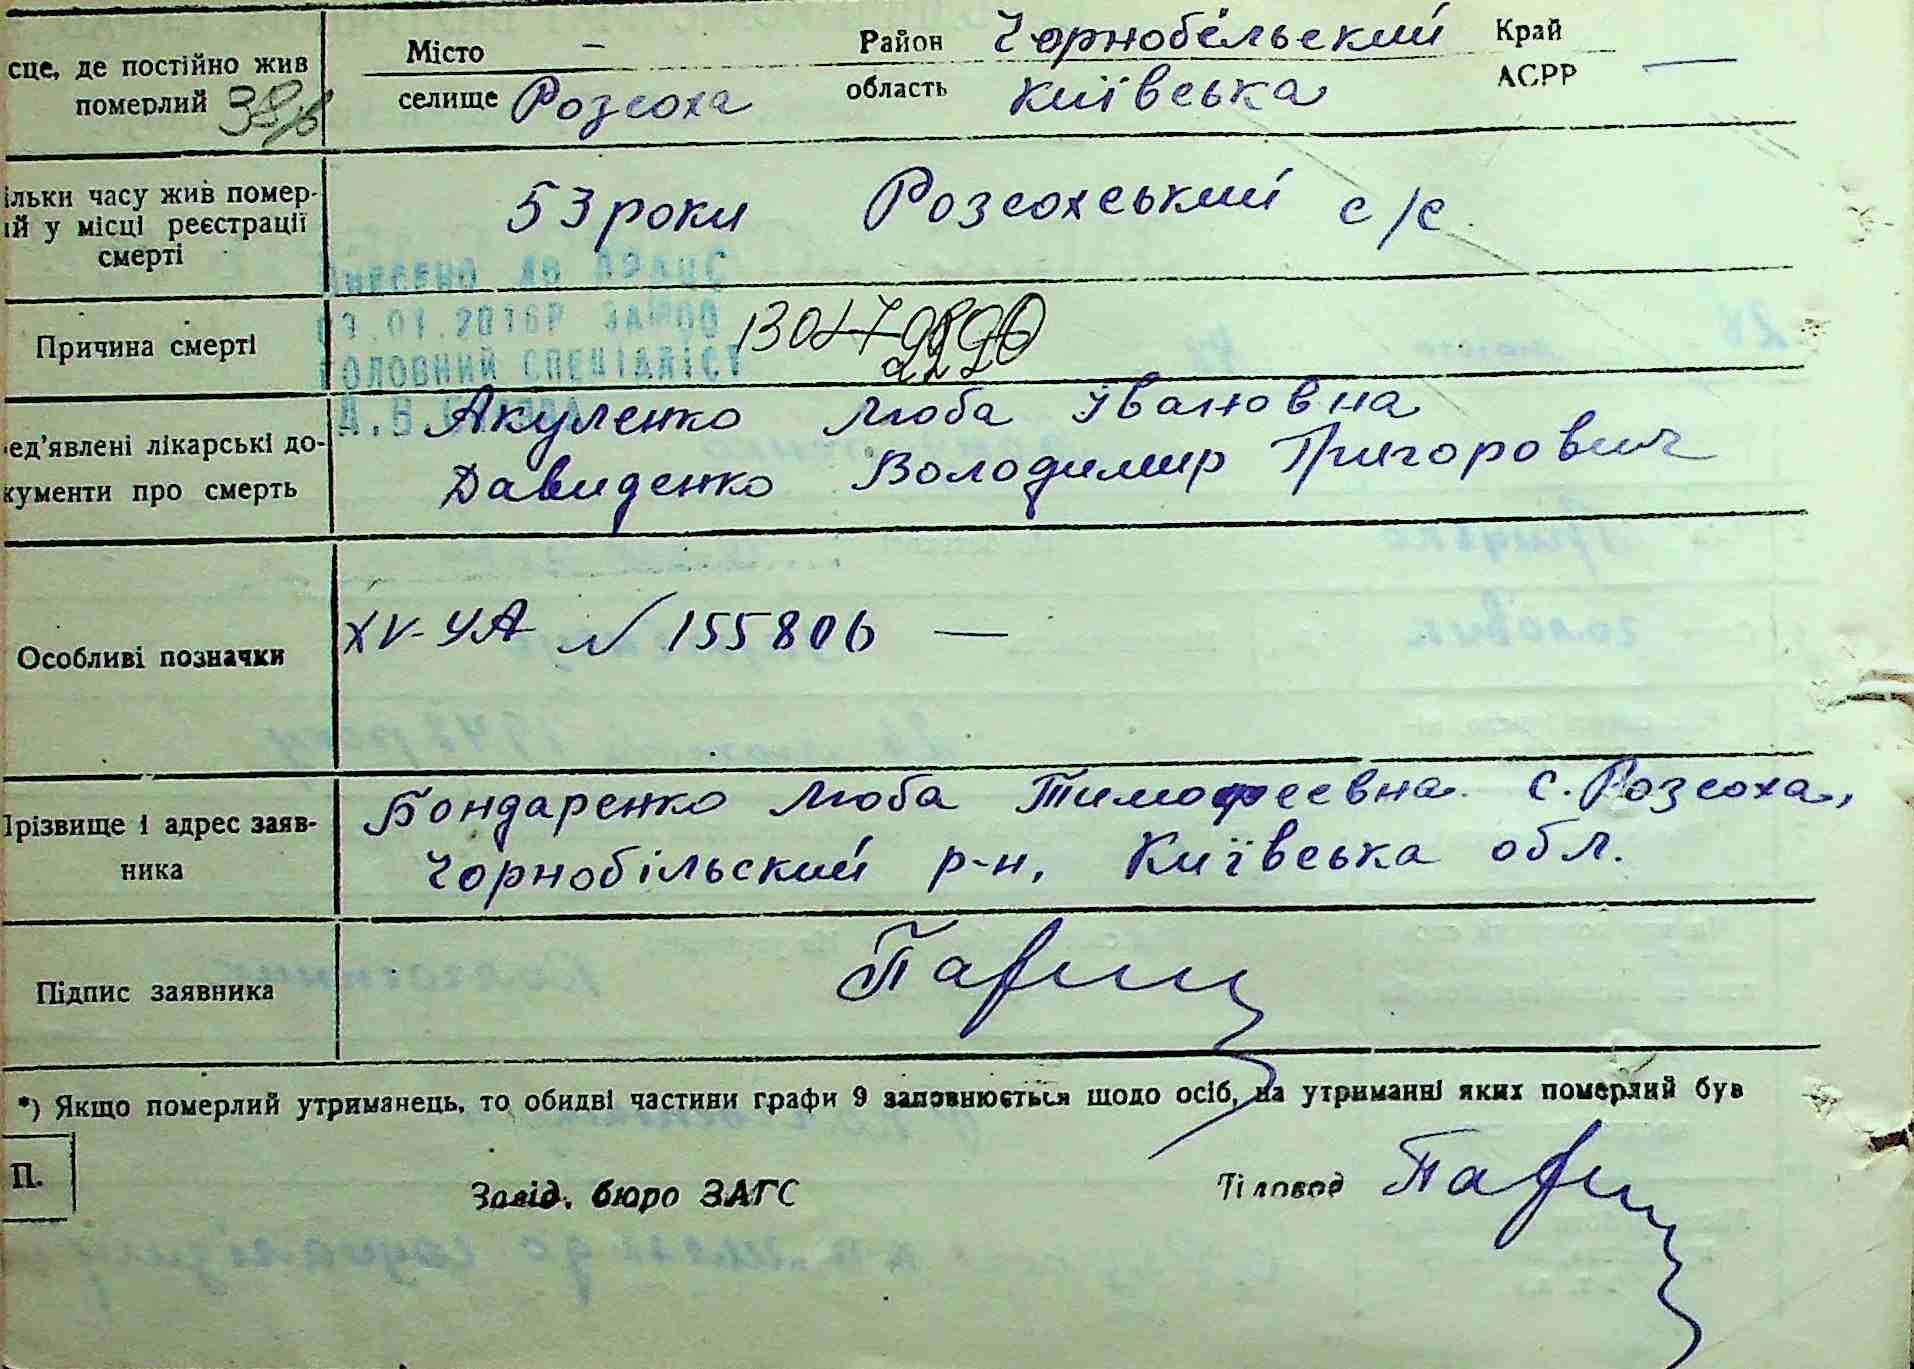 сце, де постійно жив
померлий
Місто –
селище Розсоха
Район Чорнобильський
область Київська
Край
АСРР —
ільки часу жив помер-
ий у місці реєстрації
смерті
53 роки Розсохський с/с.
Внесено до ДРАЦС
03.01.2016р
ГОЛОВНИЙ СПЕЦІАЛІСТ
Причина смерті
ед'явлені лікарські до-
кументи про смерть
Акуленко Люба Івановна
Давиденко Володимир Григорович
Особливі позначки
XV-УА № 155806 —
Прізвище і адрес заяв-
ника
Бондаренко Люба Тимофеевна. с. Розсоха,
Чорнобільский р-н, Київська обл.
Підпис заявника
*) Якщо померлий утриманець, то обидві частини графи 9 заповнюється щодо осіб, на утриманні яких померлий був
П.
Завід. бюро ЗАГС
Діловод